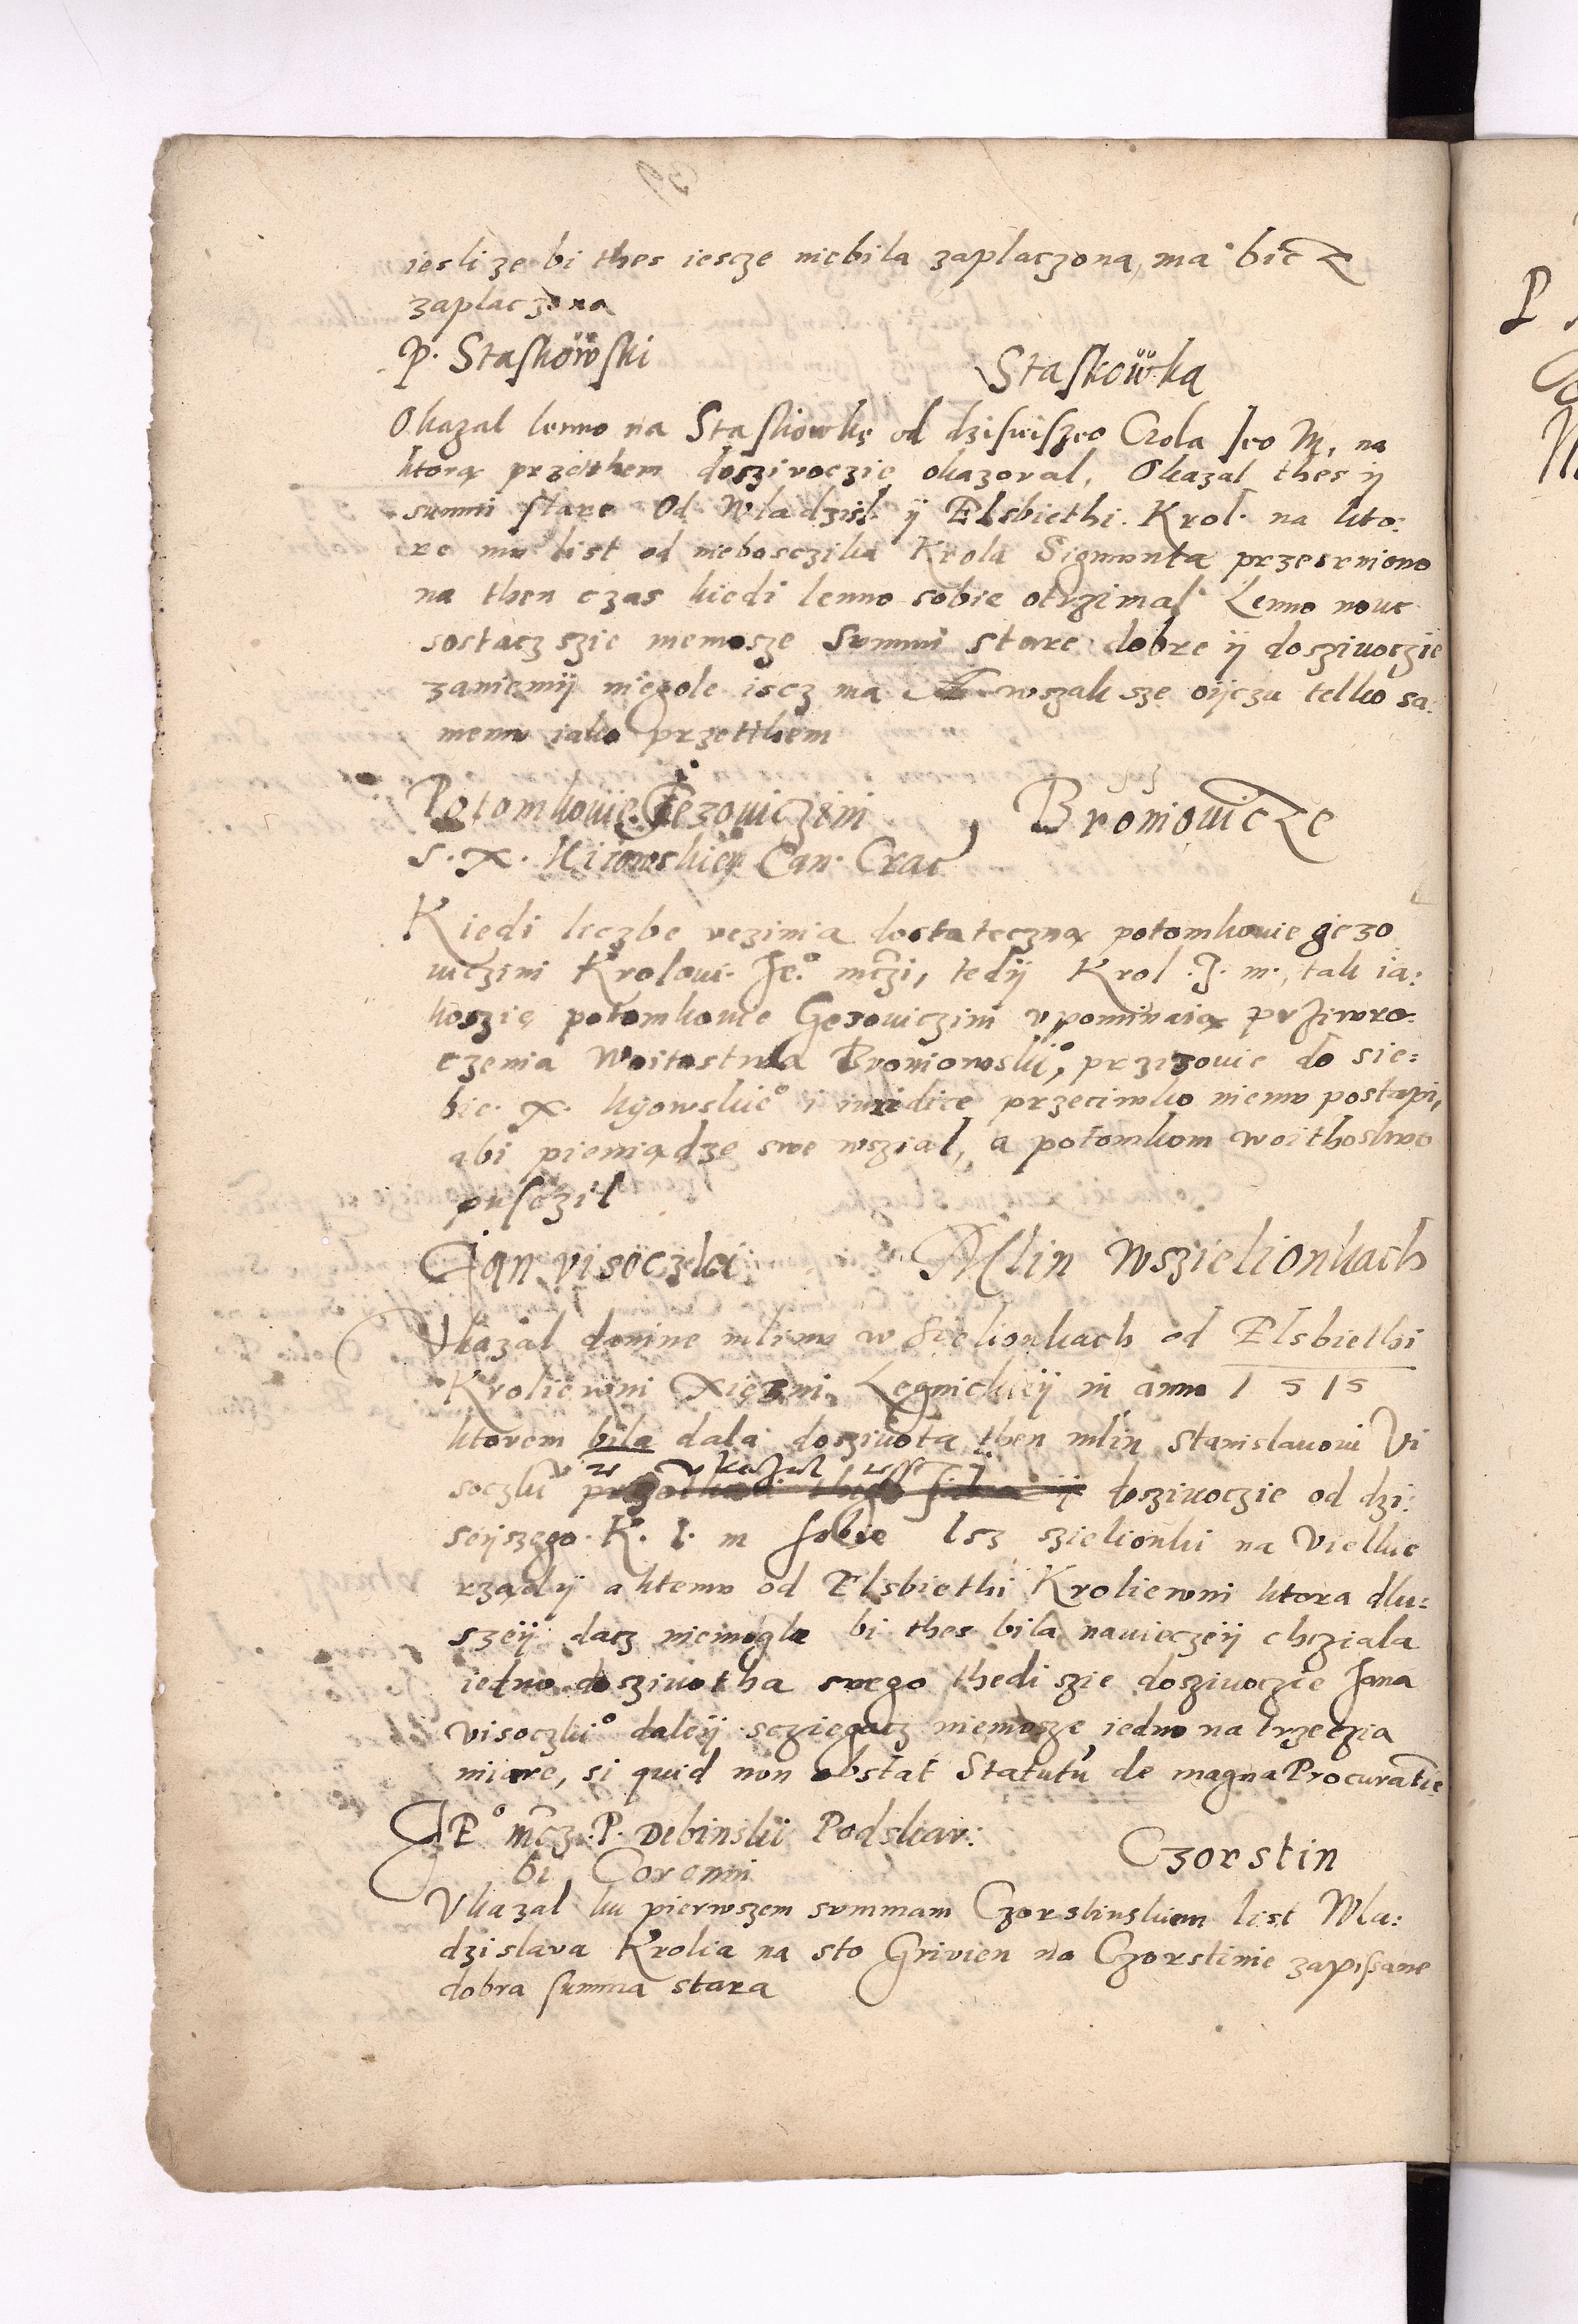 iesli ze bi thes iescze niebila zaplaczona, ma bic
zaplaczona
P. Staskowski
Staskowka
Okazal lenno na Staskowkę od dzisieiszeo Crola Jeo M, na
ktorą przetthem dosziwoczie okazoval, Okazal thes ij
summi stare Od Wladzisl. ij Elsbiethi. Krol. na kto:
re mu list od nieboszczika Krola Sigmunta
na then czas kiedi lenno sobie otrzimal Lenno nove
sostacz szie niemosze Summi stare dobre ij dosziwoczie
zaniemij niegole iscz ma wszak sze oijczu telko sa:
memu iako przetthem
Potomkowie Jezowiczini
Broniowicze
s. x. Kijowskiego Can. Crac
Kiedi liczbe vczinia dostateczną potomkowie gezo
wiczini Krolowi. Jeo. mczi, tedij Krol. J. m. tak ia:
koszię potomkowie Gezowiczini vpominaią przi wro:
czenia Woitostwa Broniowskio, przizowie do sie:
bie. x. kijowskieo i iuridice przeciwko niemu postąpi,
abi pieniądze swe wszial, a potomkom woithostwo
pusczil
Jan visoczki
Mlin Wszielionkach
Ukazal danine mlinu w Szielionkach od Elsbiethi
Kroliewni Xiężni Legnickieij in anno 1515
ktorem bila dala dosziwota then mlin Stanislawowi Vi
soczku dosziwoczie od dzi:
seijszego. K. J. m sobie szielionki na Vielkie
rządij aktemu od Elsbiethi Kroliewni ktora dlu:
szeij dacz niemogla bi thes bila navieczeij chcziala
iedno dosziwotha swego thedi szie dosziwoczie Jana
visoczkio daleij scziegacz niemosze iedno na trzeczia
miare, si quid non obstat Statutu de magna Procuratie
JEo mcz. P. Debinski Podskar:
bi Coronni
Czorstin
Ukazal ku pierwszem summam Czorstinskiem list Wla:
dzislava Krolia na sto Grivien na Czorstinie zapissane
dobra summa stara